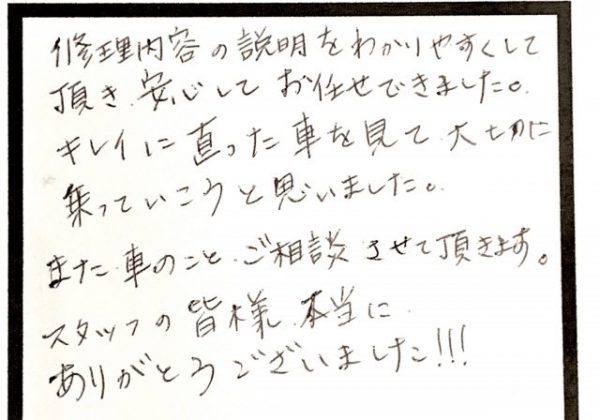 修理内容の説明をわかりやすくして
頂き、安心して お任せできました。
キレイに直った車を見て、大切に
乗っていこうと思いました。
また車のこと、ご相談させて頂きます。
スタッフの皆様、本当に
ありがとうございました!!!